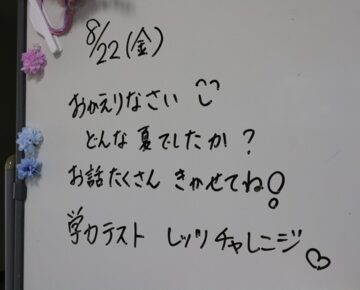 8/22(金)
おかえりなさい
どんな夏でしたか？
お話たくさん きかせてね!
学力テスト レッツチャレンジ♡